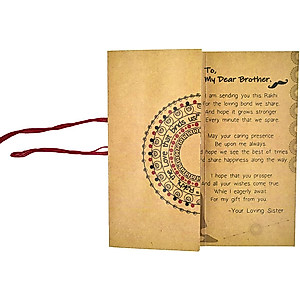 To,
My Dear Brother,
I am sending you this Rakhi
For the loving bond we share.
And hope it grows stronger
Every minute that we spare.
May your caring presence
Be upon me always.
hope we see the best of times
share happiness along the way
I hope that you prosper
And all your wishes come true.
While I eagerly await
For my gift from you.
-Your Loving Sister
Love that binds us